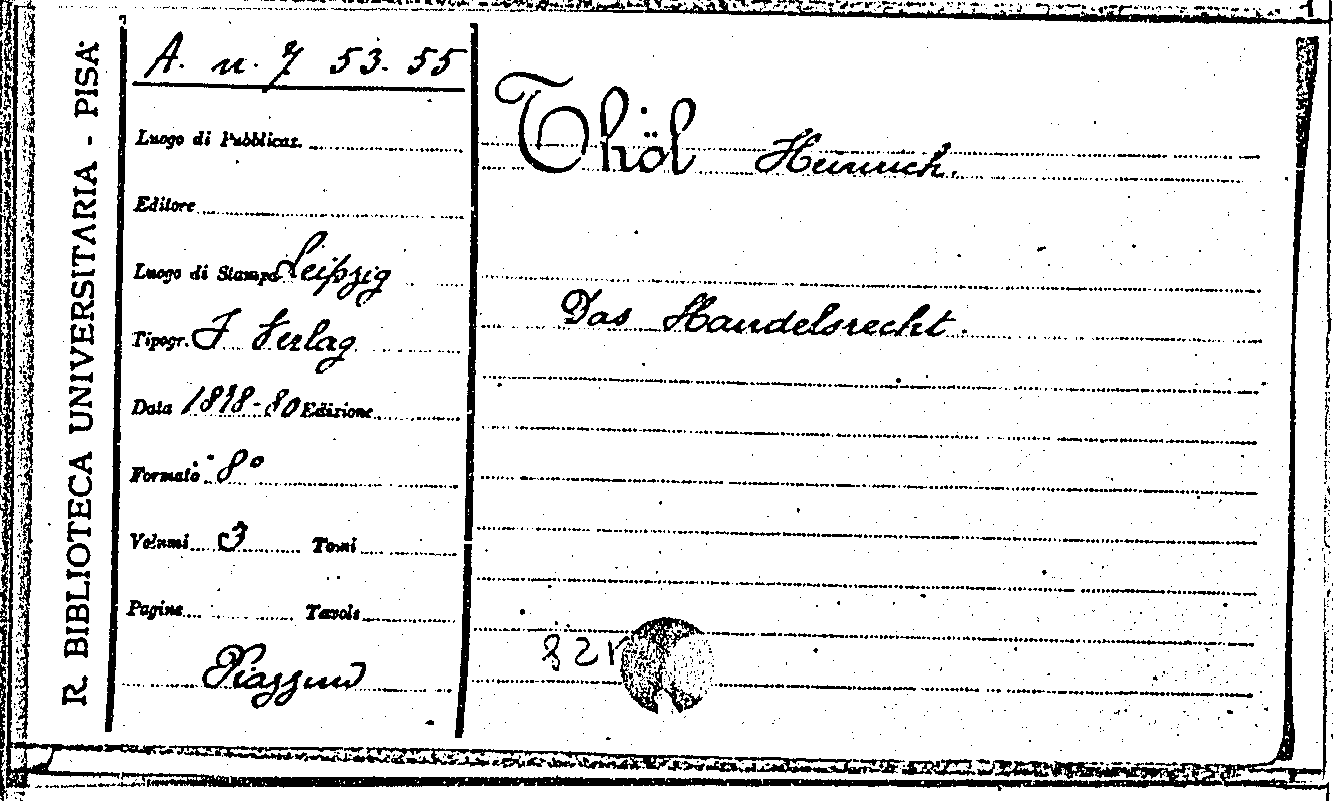 R. BIBLIOTECA UNIVERSITARIA - PISA
A. n. 7 53. 55
Luogo di Pubblicaz.
Editore
Luogo di Stampa Leipzig
Tipogr. Verlag
Data 1878-80 Edizione
Formato 8°
Volumi 3 Tomi
Pagine Tavole
Thöl Heinrich.
Das Handelsrecht.